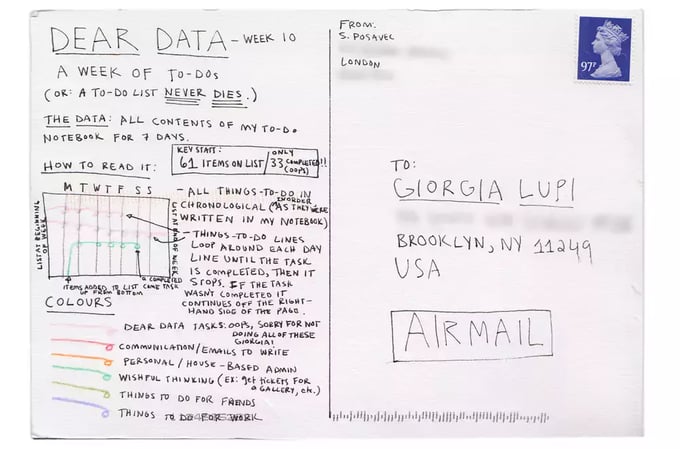 DEAR DATA - WEEK 10
A WEEK OF TO-DOs
(OR: A TO-DO LIST NEVER DIES.)
THE DATA: ALL CONTENTS OF MY TO-DO
NOTEBOOK FOR 7 DAYS.
KEY STAT:
61 ITEMS ON LIST / ONLY 33 COMPLETED!! (OOPS)
HOW TO READ IT:
M T W T F S S
LIST AT BEGINNING OF WEEK
LIST AT END OF WEEK
ITEMS ADDED TO LIST COME UP FROM BOTTOM
A COMPLETED TASK
- ALL THINGS-TO-DO IN
CHRONOLOGICAL (IN ORDER AS THEY WERE
WRITTEN IN MY NOTEBOOK)
- THINGS-TO-DO LINES
LOOP AROUND EACH DAY
LINE UNTIL THE TASK
IS COMPLETED, THEN IT
STOPS. IF THE TASK
WASN'T COMPLETED IT
CONTINUES OFF THE RIGHT-
HAND SIDE OF THE PAGE.
COLOURS
DEAR DATA TASKS: OOPS, SORRY FOR NOT
DOING ALL OF THESE
GIORGIA!
COMMUNICATION/EMAILS TO WRITE
PERSONAL/HOUSE-BASED ADMIN
WISHFUL THINKING (EX: get TICKETS FOR
A GALLERY, etc.)
THINGS TO DO FOR FRIENDS
THINGS TO DO FOR WORK
FROM:
S. POSAVEC
LONDON
97P
TO:
GIORGIA LUPI
BROOKLYN, NY 11249
USA
AIRMAIL